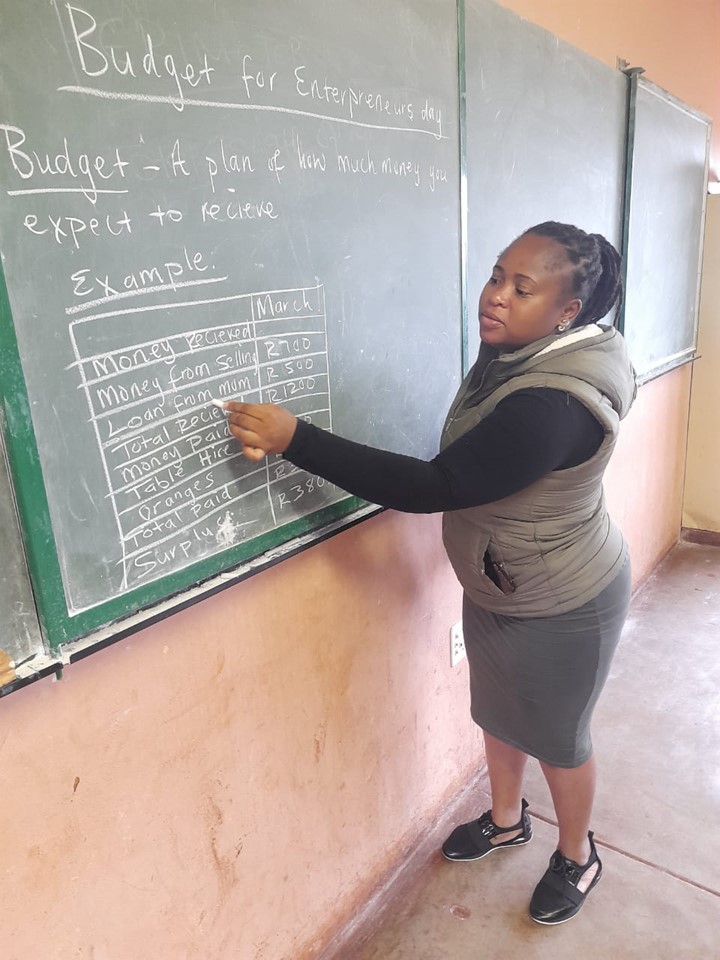 Budget for Enterpreneurs day
Budget - A plan of how much money you
expect to recieve
Example:
March
Money recieved
Money from Selling R700
Loan from mum R500
Total Reciev R1200
Money Paid
Table Hire
Oranges
Total Paid
Surplus R380